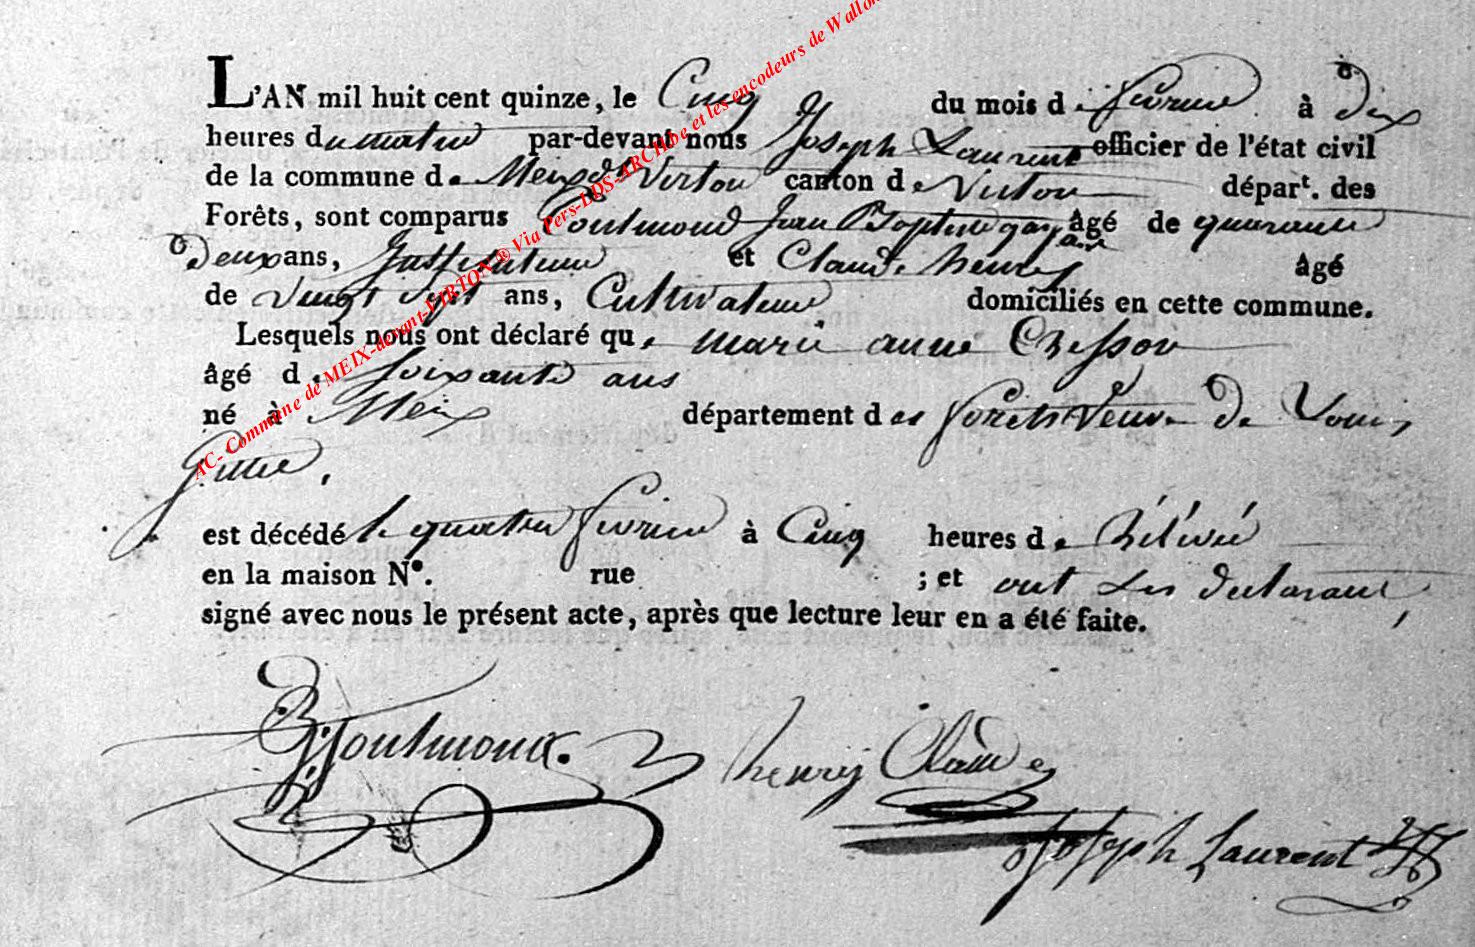 AC- Commune de MEIX-devant-VIRTON ® Via Pers-LDS-ARCHibe et les encodeurs de Wallon
L'AN mil huit cent quinze, le Cinq du mois de fevrier à Dix
heures du matin par-devant nous Joseph Laurent officier de l'état civil
de la commune de Meix dt Virton canton de Virton départ. des
Forêts, sont comparus Pontmoud Jean Bapte âgé de quarante
Deux ans, et Claude henry âgé
de vingt Sept ans, Cultivateur domiciliés en cette commune.
Lesquels nous ont déclaré que marie anne Cresson
âgé de Soixante ans
né à Meix département des forêts Veuve De Louis
est décédé le quatre fevrier à Cinq heures de Rélevée
en la maison N°. rue ; et ont Les declarant
signé avec nous le présent acte, après que lecture leur en a été faite.
henry Claude
Joseph Laurent